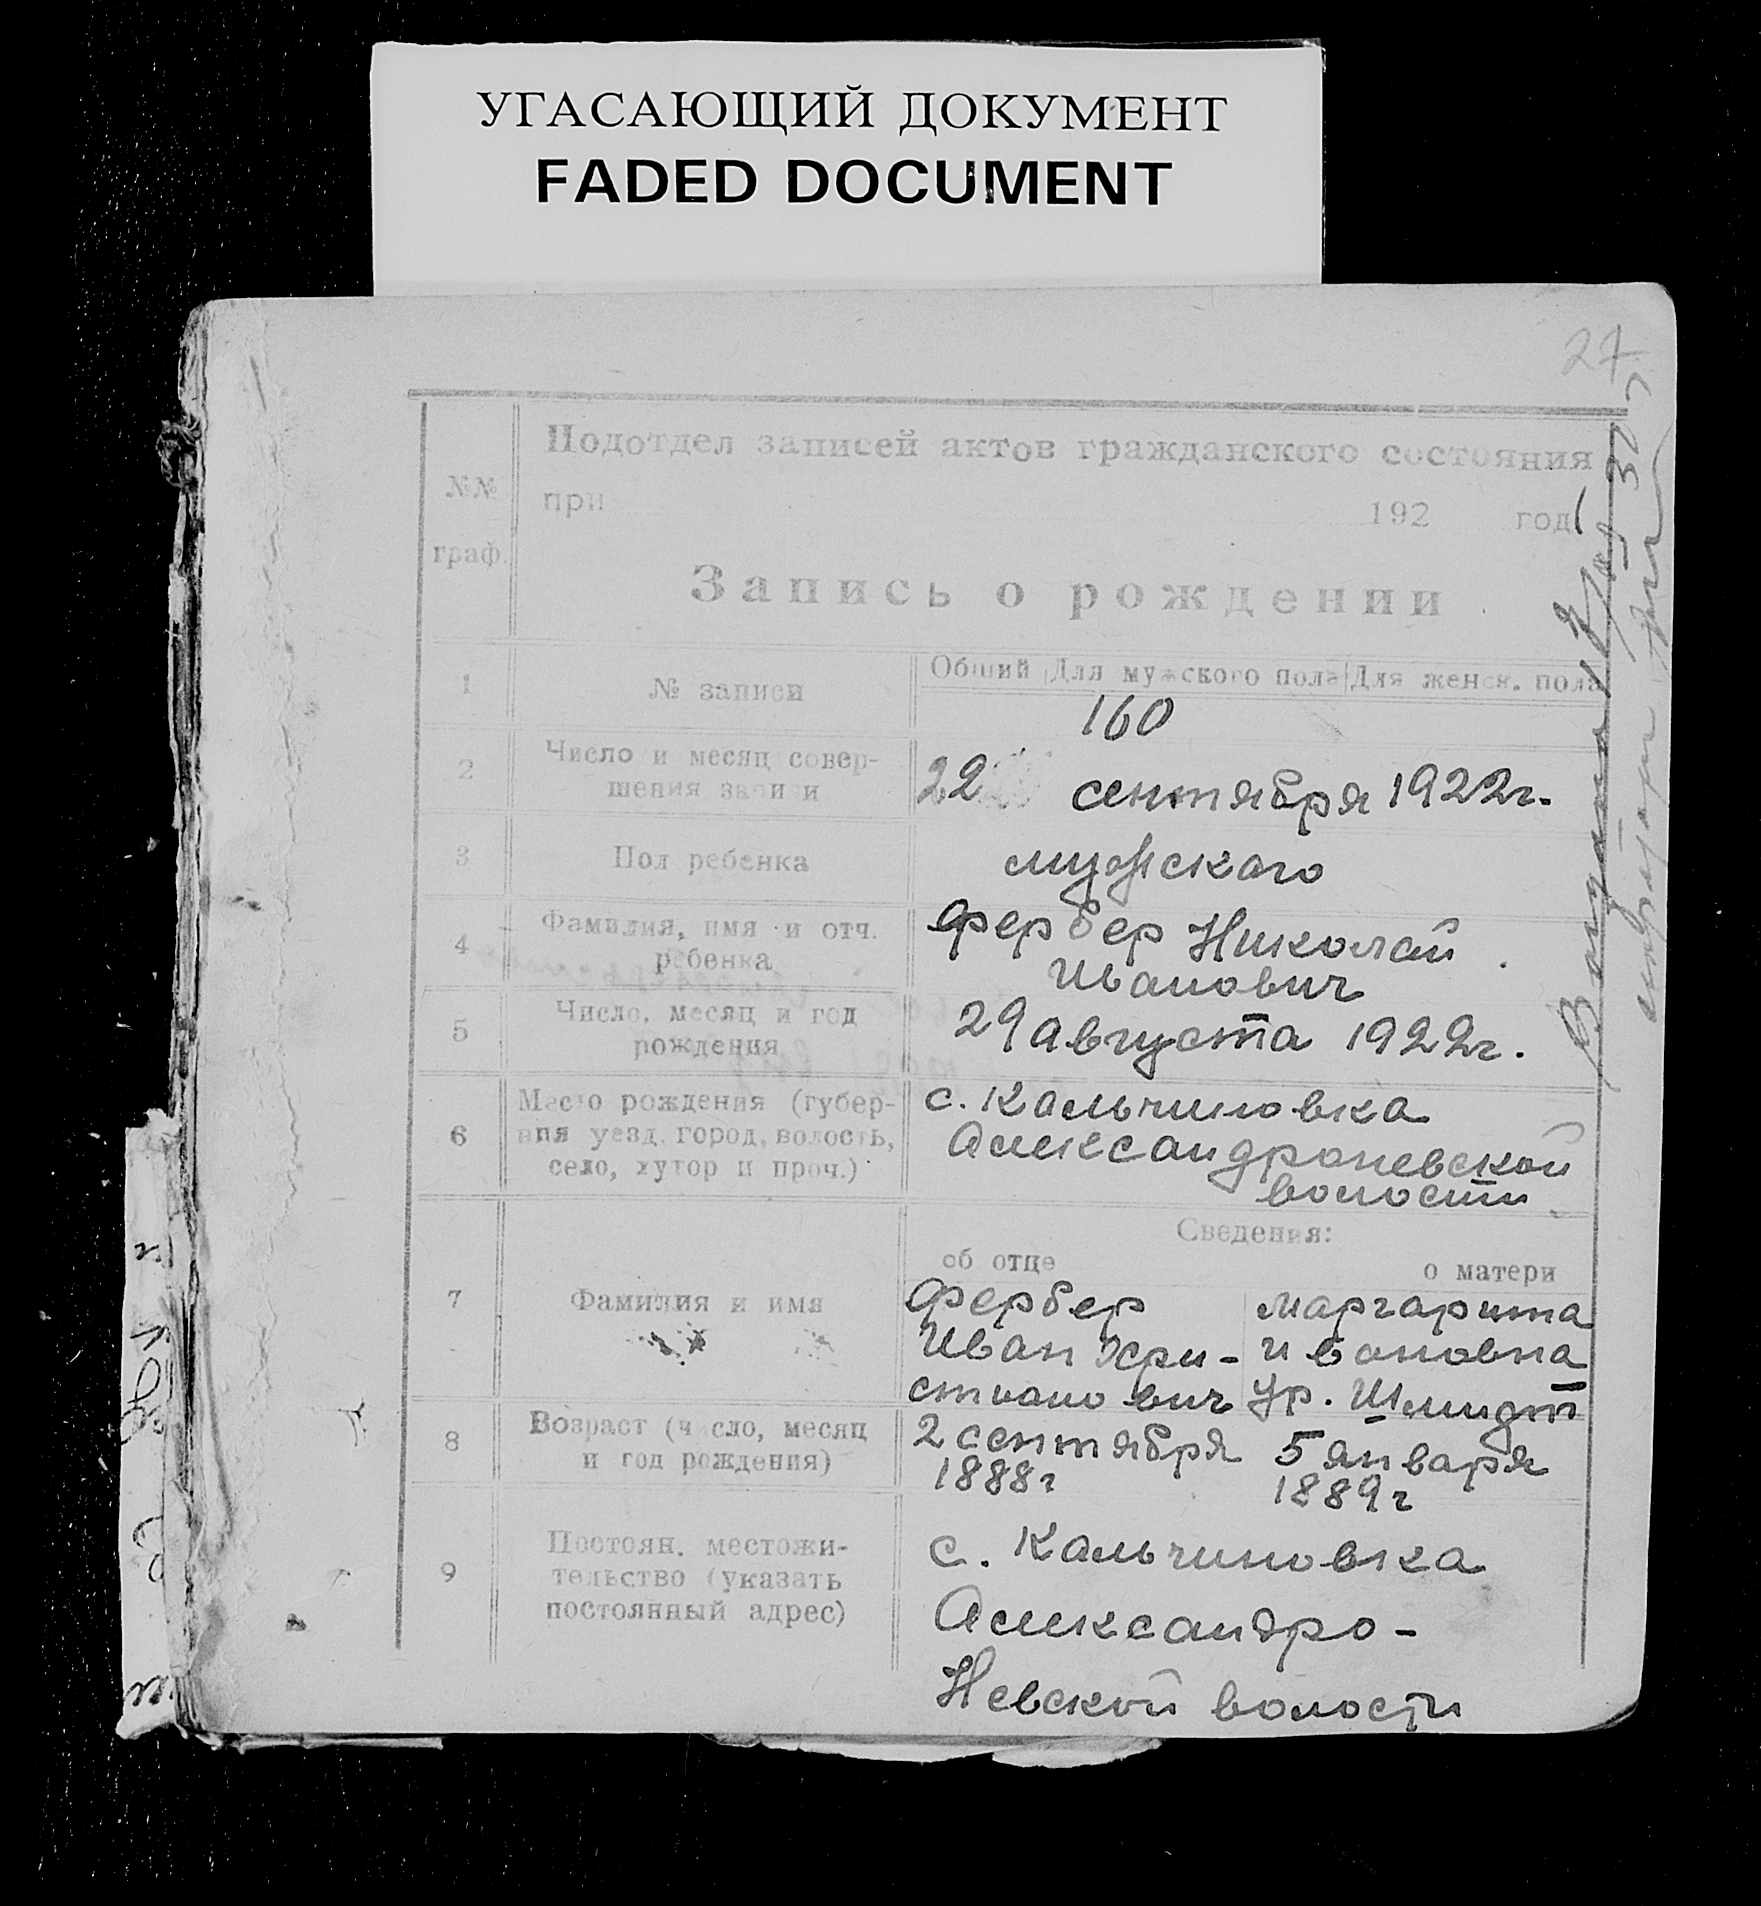 УГАСАЮЩИЙ ДОКУМЕНТ
FADED DOCUMENT
27
№№ граф.
Подотдел записей актов гражданского состояния
при 192 год
Запись о рождении
1
№ записи
Общий Для мужского пола Для женск. пола
160
2
Число и месяц совер-
шения записи
22 сентября 1922г.
3
Пол ребенка
мужского
4
Фамилия, имя и отч.
ребенка
Фербер Николай
Иванович
5
Число, месяц и год
рождения
29 августа 1922г.
6
Место рождения (губер-
ния уезд, город, волость,
село, хутор и проч.)
с. Кальчиновка
Александроневской
волости
Сведения:
об отце
о матери
7
Фамилия и имя
Фербер
Иван Хри-
стианович
Маргарита
Ивановна
ур. Шмидт
8
Возраст (число, месяц
и год рождения)
2 сентября
1888г
5 января
1889г
9
Постоян. местожи-
тельство (указать
постоянный адрес)
с. Кальчиновка
Александро-
Невской волости